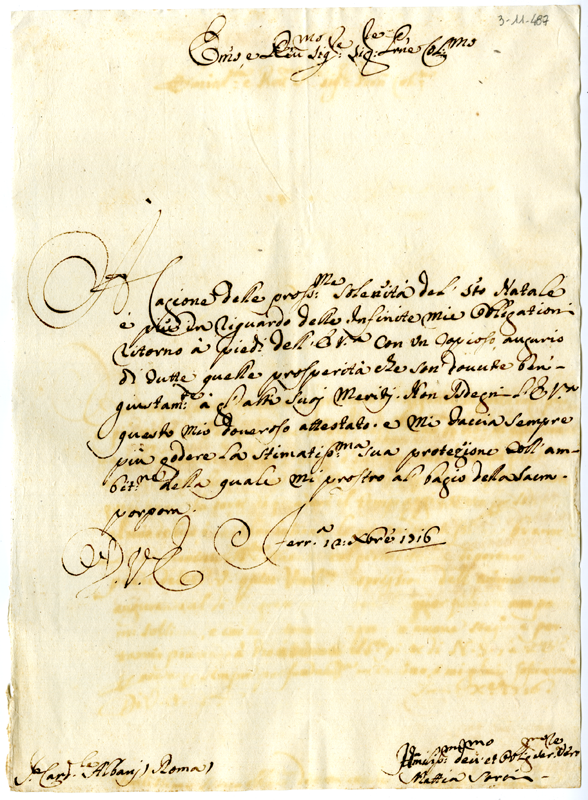 3-11-487
Em̃o, e Reu.mo Sig.re Sig.re P̃rñe Col.mo
A Cagione delle pross.me Solennità del Sto Natale
è più in riguardo delle Infinite mie Obligationi
ritorno à piedi dell' E Vra con un Copioso augurio
di tutte quelle prosperità che son dovute ben
giustam.te à gl' alti Suoj Meritj. Non Isdegni L' E Vra
questo mio doveroso attestato. e mi faccia sempre
più godere La Stimatiss.ma Sua protezione Coll' am-
bit.ne della quale mi prostro al bagio della Sacra
porpora.
D. V. E. Ferr.a 12: Xbre 1716
Sr Card.le Albanj (Roma)
Umiliss.mo dev.mo et Oblig.mo Ser.re
Mattia